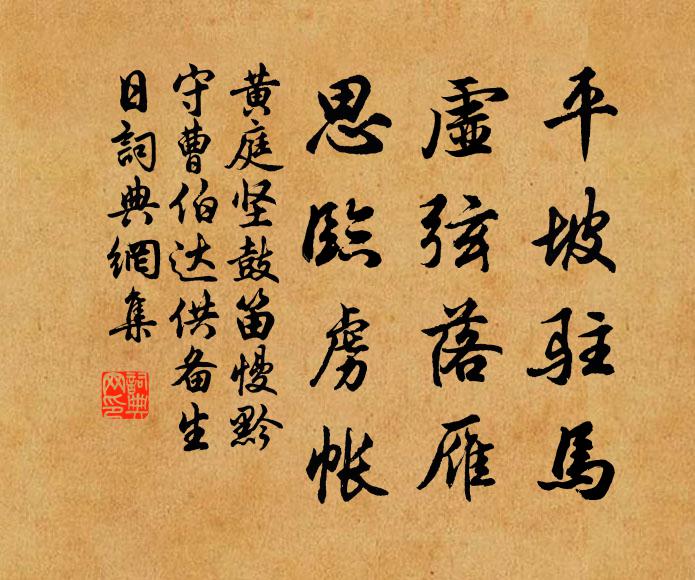 平坡駐馬
虛弦落雁
思臨虜帳
黄庭坚鼓笛慢黔
守曹伯达供备生
日詞典網集
詞典
网印